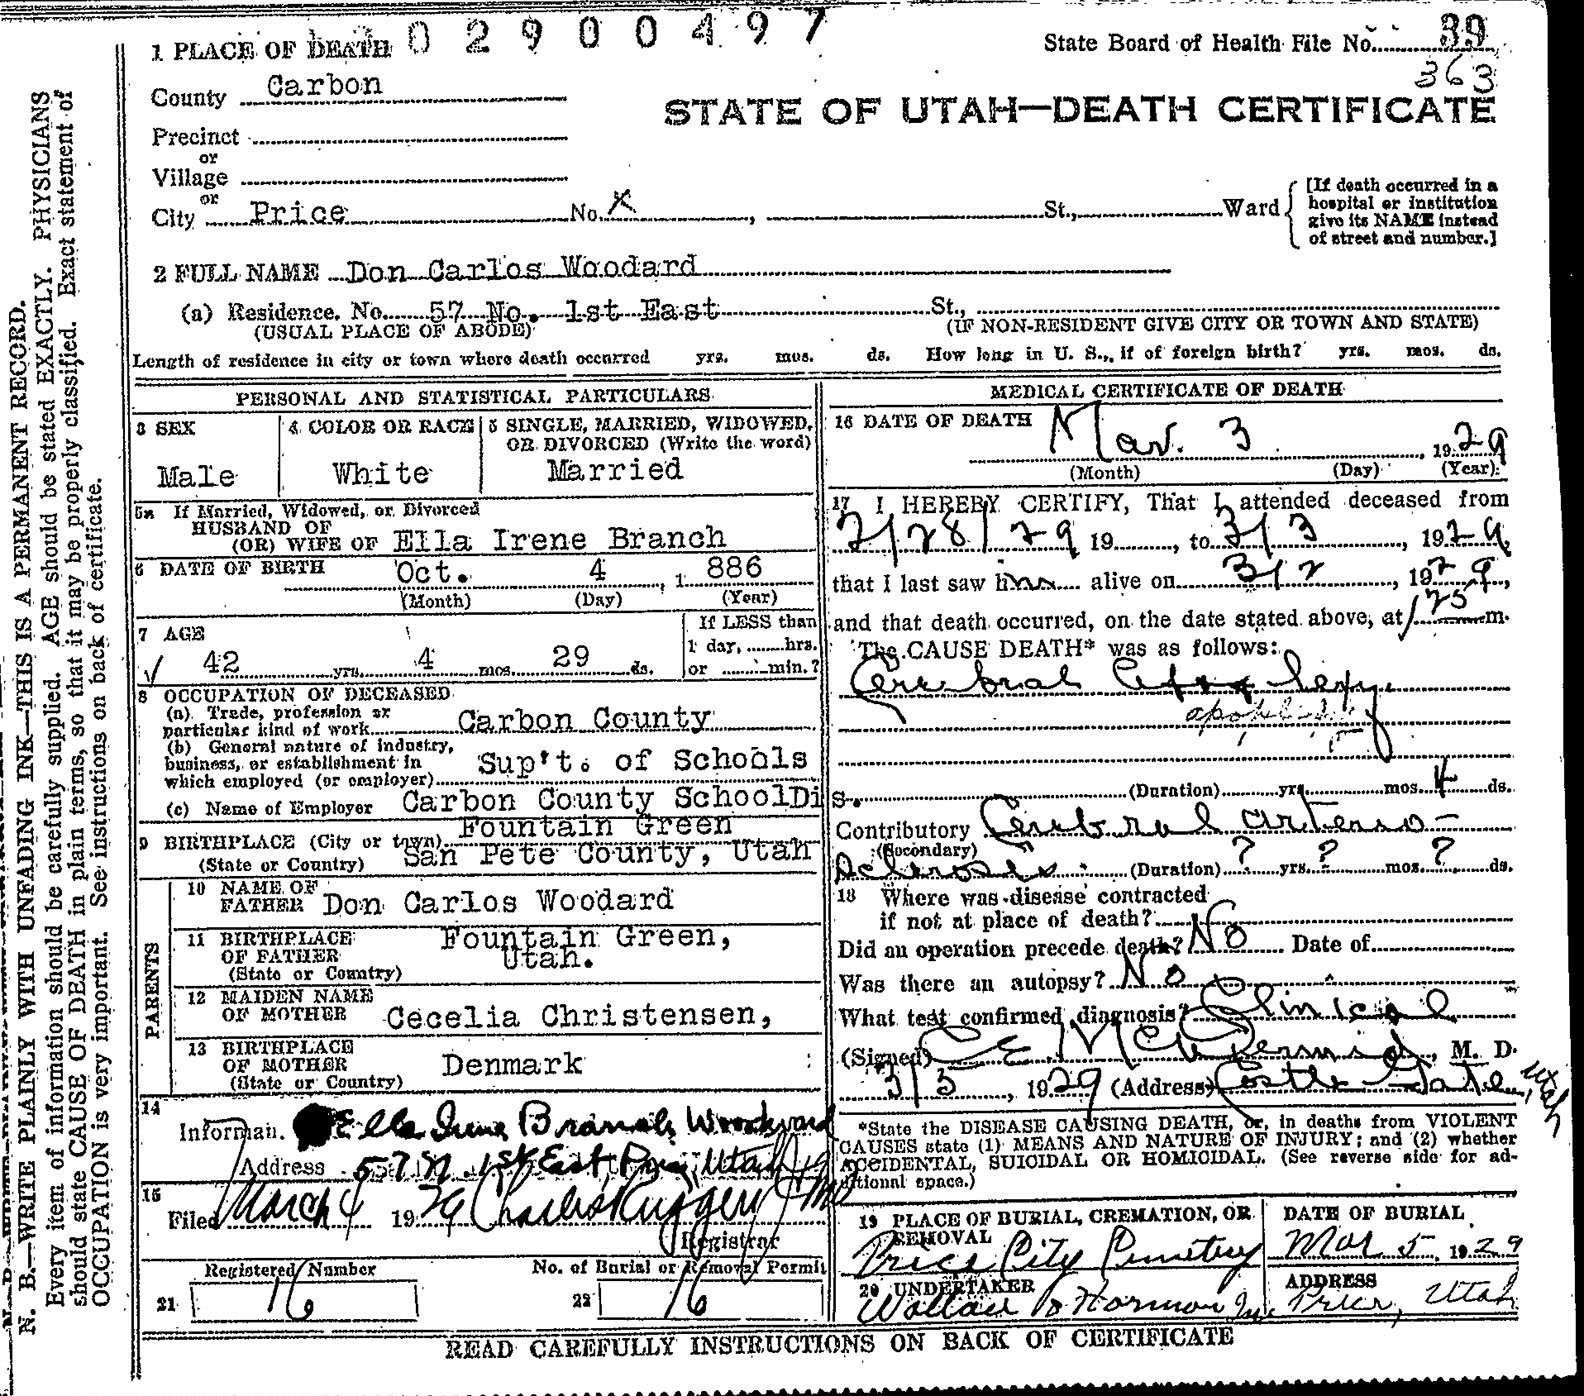 0 2 9 0 0 4 9 7
1 PLACE OF DEATH
State Board of Health File No. 39
363
County Carbon
STATE OF UTAH—DEATH CERTIFICATE
Precinct
or
Village
or
City Price No. X , St., Ward
[If death occurred in a
hospital or institution
give its NAME instead
of street and number.]
2 FULL NAME Don Carlos Woodard
(a) Residence. No. 57 No. 1st East St.,
(USUAL PLACE OF ABODE) (IF NON-RESIDENT GIVE CITY OR TOWN AND STATE)
Length of residence in city or town where death occurred yrs. mos. ds. How long in U. S., if of foreign birth? yrs. mos. ds.
PERSONAL AND STATISTICAL PARTICULARS
3 SEX
Male
4 COLOR OR RACE
White
5 SINGLE, MARRIED, WIDOWED,
OR DIVORCED (Write the word)
Married
5a If Married, Widowed, or Divorced
HUSBAND OF
(OR) WIFE OF Ella Irene Branch
6 DATE OF BIRTH Oct. 4 , 1 886
(Month) (Day) (Year)
7 AGE
42 yrs. 4 mos. 29 ds.
If LESS than
1 day, ......hrs.
or ......min.?
8 OCCUPATION OF DECEASED
(a) Trade, profession or
particular kind of work Carbon County
(b) General nature of industry,
business, or establishment in
which employed (or employer) Sup't. of Schools
(c) Name of Employer Carbon County SchoolDis.
9 BIRTHPLACE (City or town) Fountain Green
(State or Country) San Pete County, Utah
PARENTS
10 NAME OF
FATHER Don Carlos Woodard
11 BIRTHPLACE
OF FATHER
(State or Country)
Fountain Green,
Utah.
12 MAIDEN NAME
OF MOTHER Cecelia Christensen,
13 BIRTHPLACE
OF MOTHER
(State or Country) Denmark
14
Informan. Ella Irene Branch Woodward
Address 57 N 1st East Price, Utah
15
Filed March 4 1929 Charles Ruggeri
Registrar
Registered Number
21 16
No. of Burial or Removal Permit
22 16
MEDICAL CERTIFICATE OF DEATH
16 DATE OF DEATH Mar. 3 , 1929
(Month) (Day) (Year)
17 I HEREBY CERTIFY, That I attended deceased from
2/28/29 19 , to 3/3 , 1929,
that I last saw him alive on 3/2 , 1929,
and that death occurred, on the date stated above, at 125 m.
The CAUSE DEATH* was as follows:
Cerebral
apoplexy
(Duration) yrs. mos. 4 ds.
Contributory Cerebral arterio-
(Secondary)
sclerosis (Duration) ? yrs. ? mos. ? ds.
18 Where was disease contracted
if not at place of death?
Did an operation precede death? No Date of
Was there an autopsy? No
What test confirmed diagnosis? Clinical
(Signed) C E McDermid, M. D.
3/5 , 1929 (Address) Castle Gate, Utah
*State the DISEASE CAUSING DEATH, or, in deaths from VIOLENT
CAUSES state (1) MEANS AND NATURE OF INJURY; and (2) whether
ACCIDENTAL, SUICIDAL OR HOMICIDAL. (See reverse side for ad-
ditional space.)
19 PLACE OF BURIAL, CREMATION, OR
REMOVAL
Price City Cemetery
DATE OF BURIAL
Mar 5, 1929
20 UNDERTAKER
Wallace & Harmon Inc
ADDRESS
Price, Utah
READ CAREFULLY INSTRUCTIONS ON BACK OF CERTIFICATE
N. B.—WRITE PLAINLY WITH UNFADING INK—THIS IS A PERMANENT RECORD.
Every item of information should be carefully supplied. AGE should be stated EXACTLY. PHYSICIANS
should state CAUSE OF DEATH in plain terms, so that it may be properly classified. Exact statement of
OCCUPATION is very important. See instructions on back of certificate.